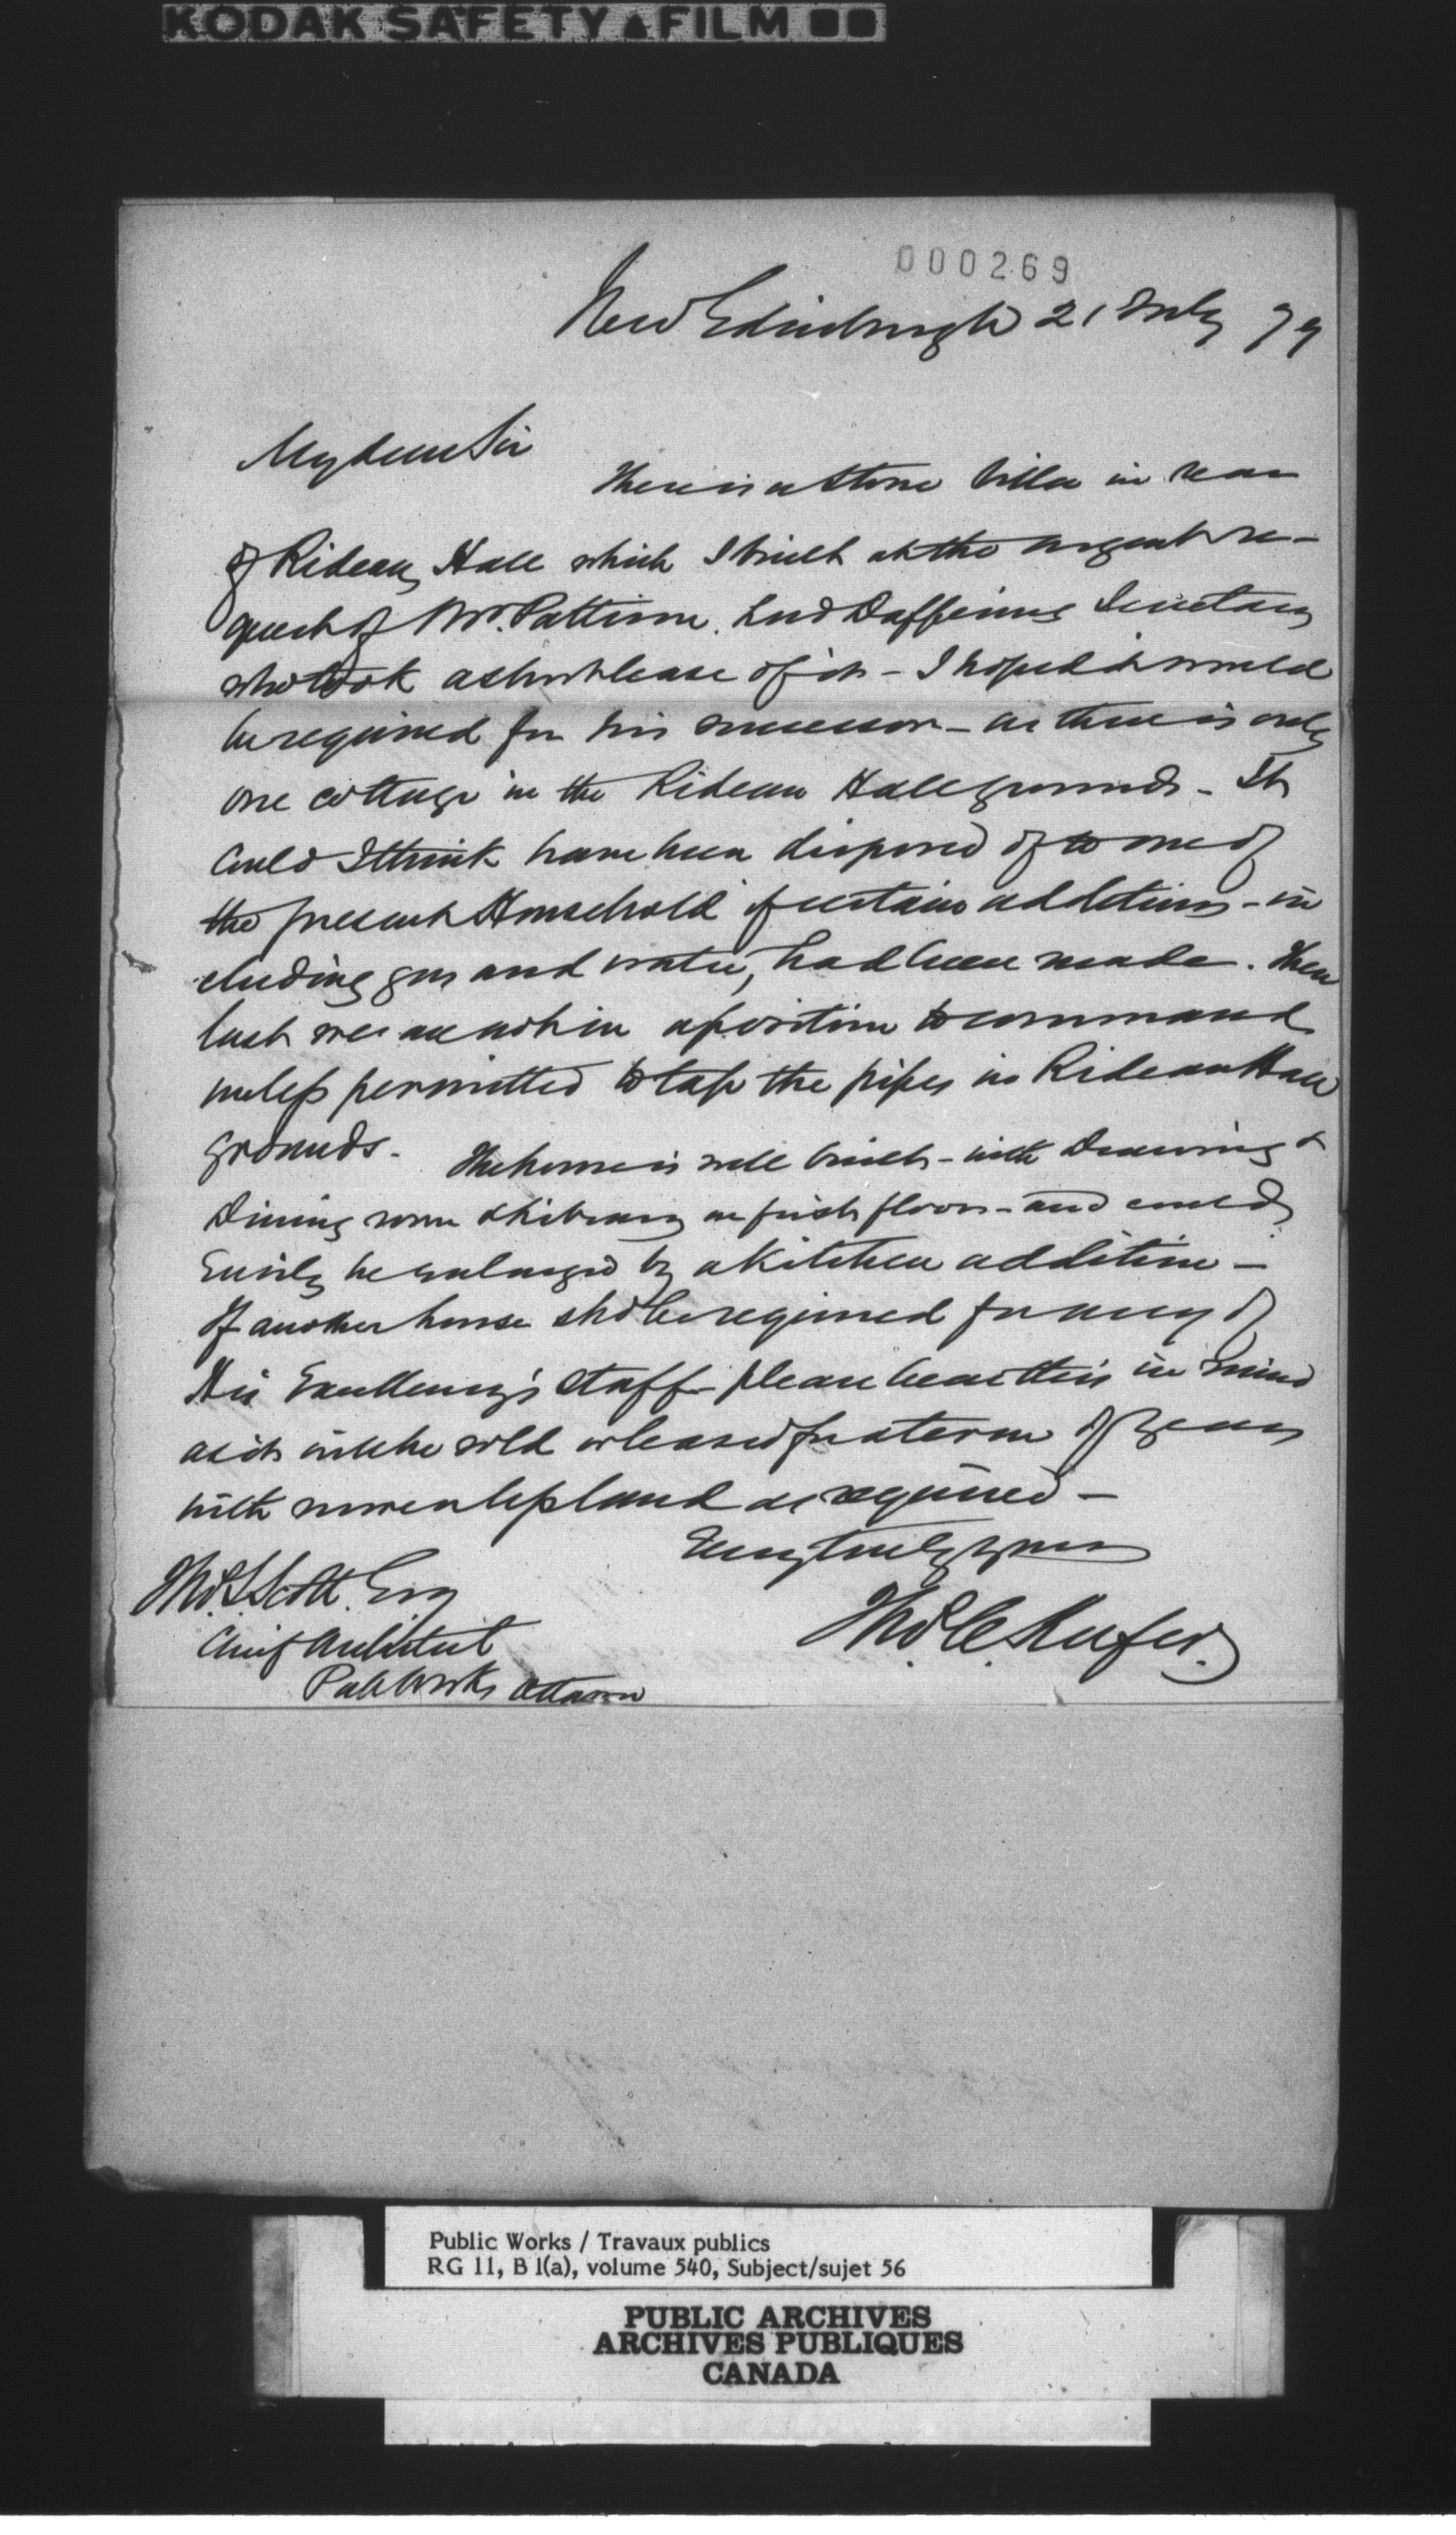 KODAK SAFETY ▲ FILM
000269
New Edinburgh 21 July 79
My dear Sir
There is a Stone Villa in rear
of Rideau Hall which I built at the urgent re-
quest of Mr. Pattison. Lord Dufferins Secretary
who took a short lease of it - I hoped it would
be required for his successor - as there is only
one cottage in the Rideau Hall grounds - It
could I think have been disposed of to one of
the present Household if certain additions - in
cluding gas and water, had been made. These
last we are not in a position to command
unless permitted to tap the pipes in Rideau Hall
grounds - The house is well built - with Drawing &
Dining room & Library on first floor - and could
easily be enlarged by a Kitchen addition -
If another house shd be required for any of
His Excellency's Staff - please bear this in mind
as it will be sold or leased for a term of years
with more or less land as required -
Very truly yours
Tho. C. Keefer.
Tho. S. Scott. Esq
Chief Architect
Pub Works Ottawa
Public Works / Travaux publics
RG 11, B 1(a), volume 540, Subject/sujet 56
PUBLIC ARCHIVES
ARCHIVES PUBLIQUES
CANADA